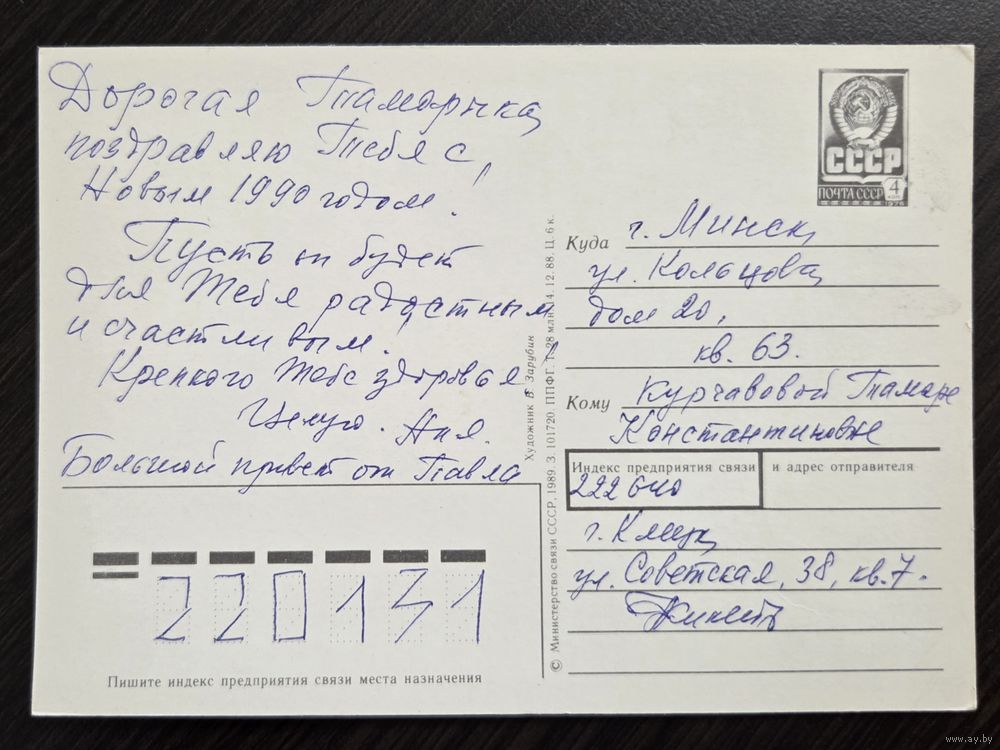 Дорогая Тамарычка,
поздравляю Тебя с
Новым 1990 годом!
Пусть он будет
для Тебя радостным
и счастливым.
Крепкого Тебе здоровья
Целую. Аня.
Большой привет от Павла
СССР
ПОЧТА СССР 4
Куда г. Минск,
ул. Кольцова,
дом 20,
кв. 63.
Кому Курчавовой Тамаре
Константиновне
Индекс предприятия связи и адрес отправителя
222640
г. Клецк,
ул. Советская, 38, кв. 7.
220131
Пишите индекс предприятия связи места назначения
Художник В. Зарубин
© Министерство связи СССР, 1989. З. 101720. ППФГ. Т. 28 млн. 14. 12. 88. Ц. 6 к.
www.ay.by